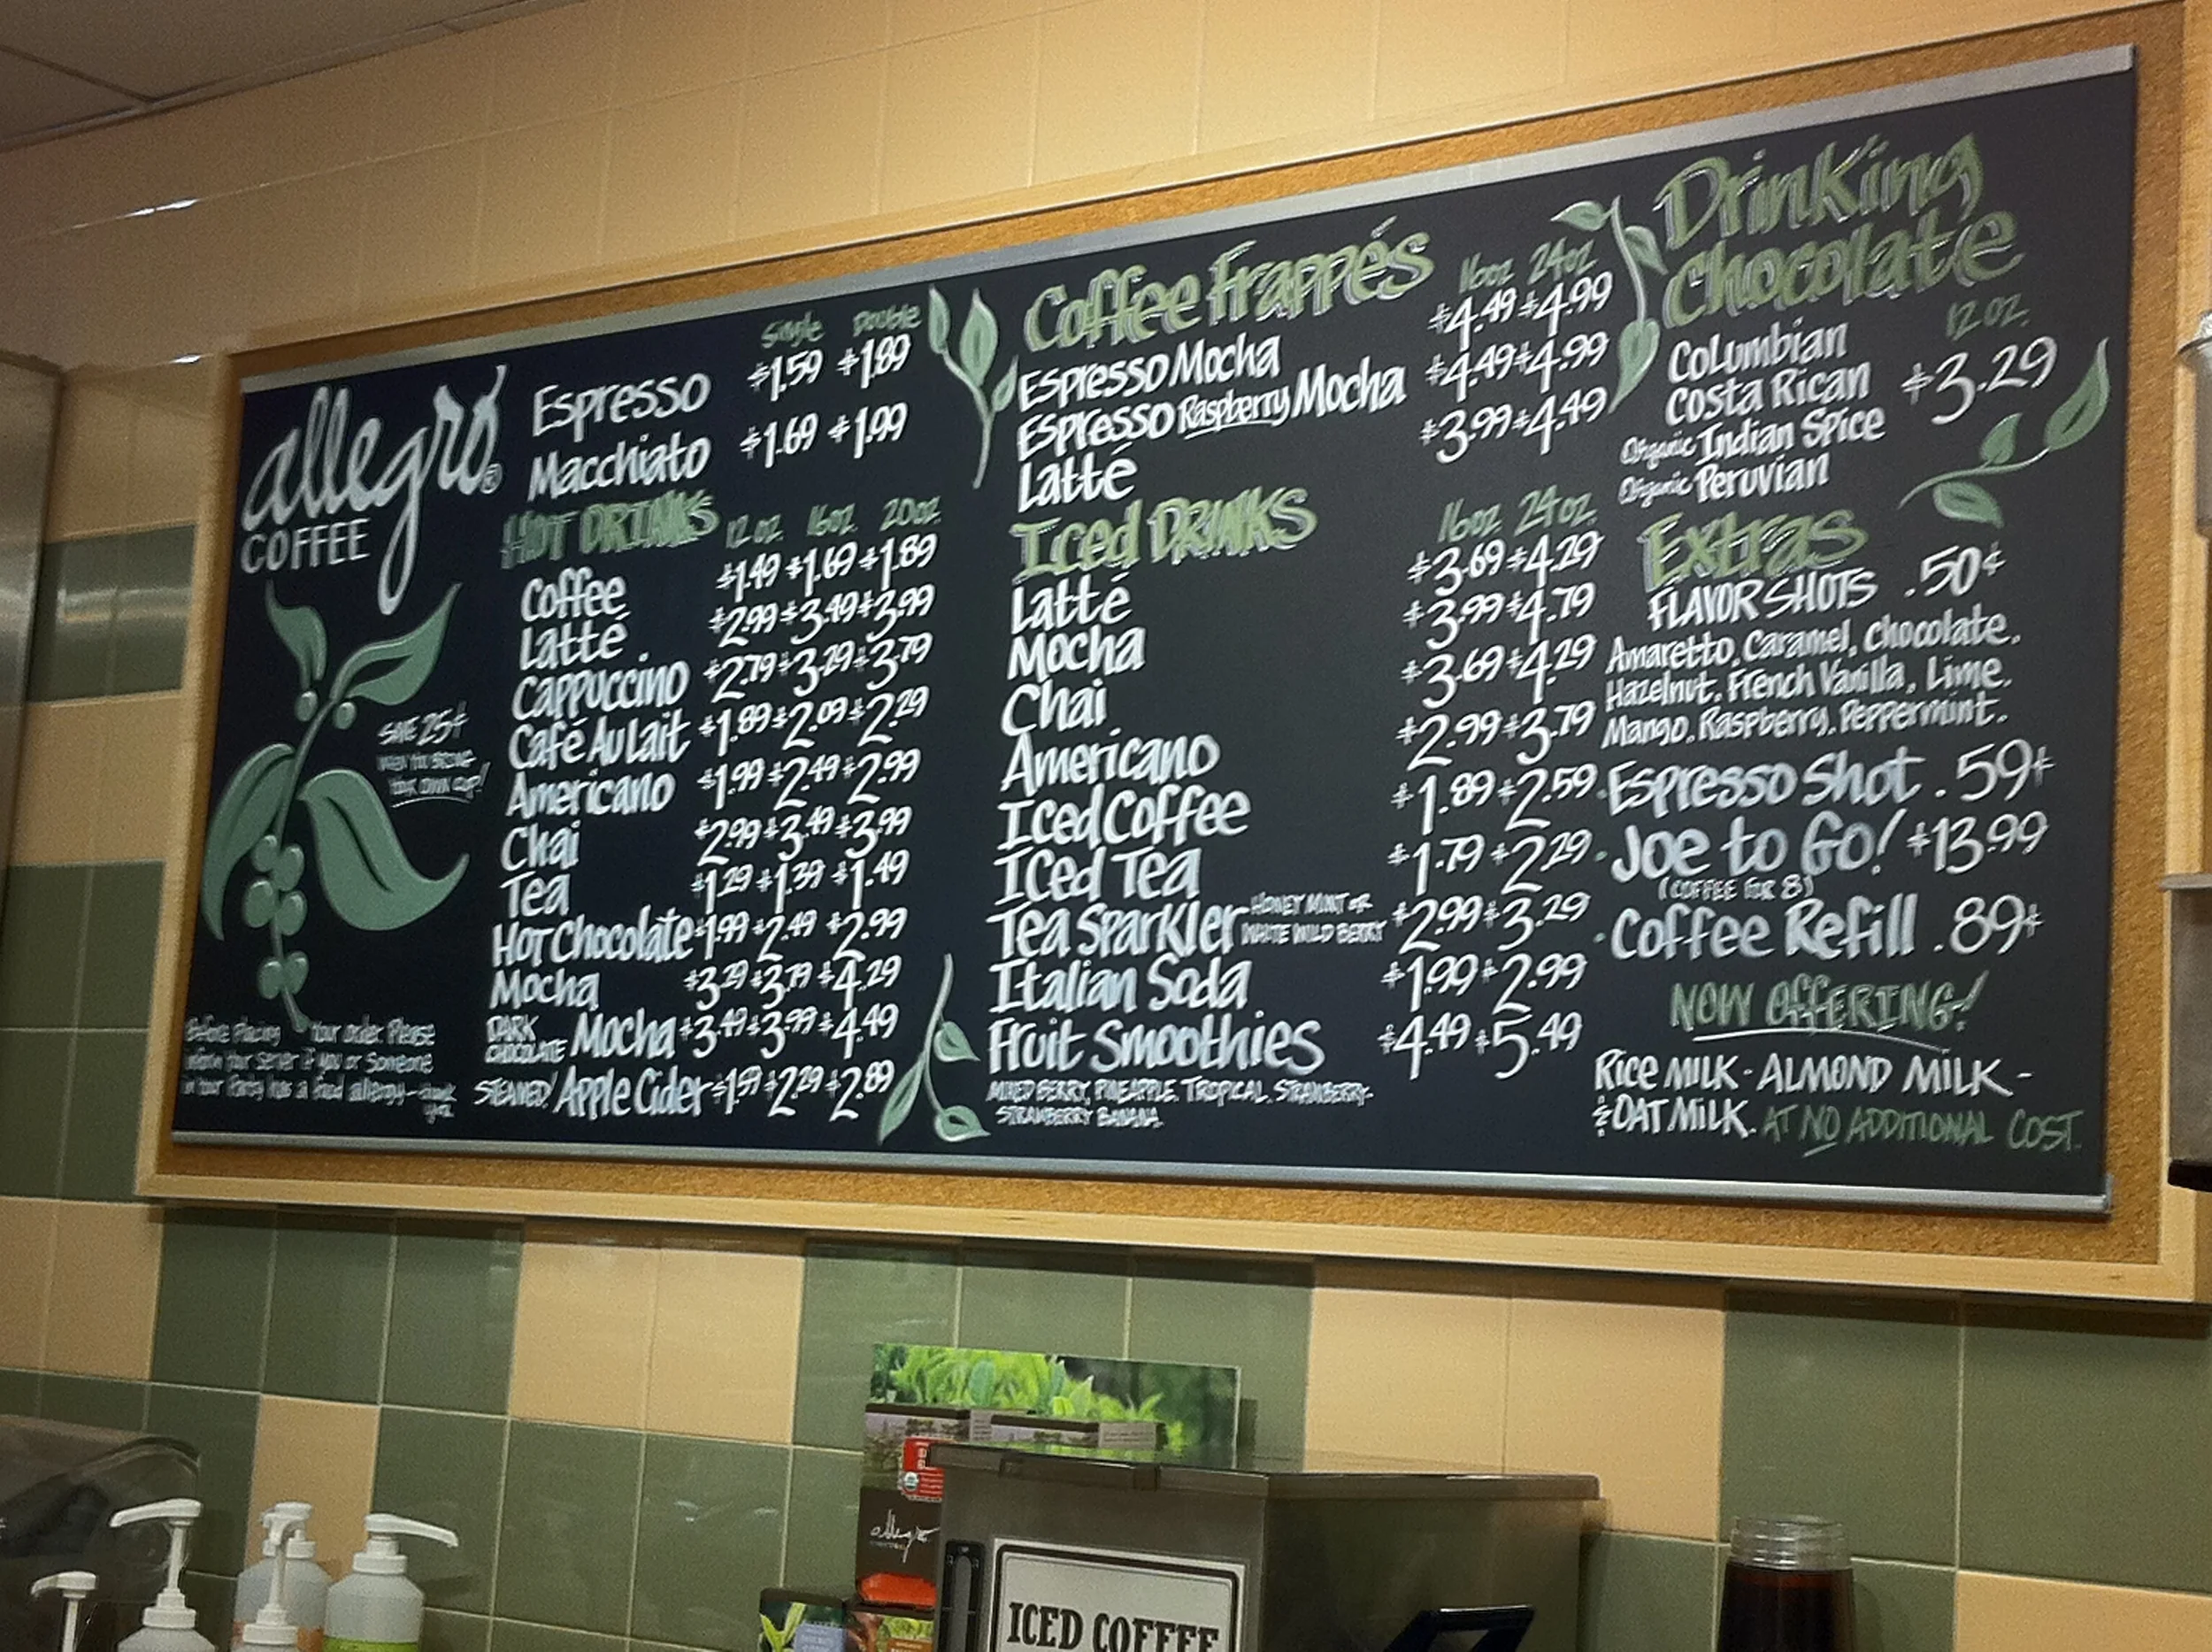 allegro®
COFFEE
SAVE 25¢
WHEN YOU BRING
YOUR OWN CUP!
Before Placing Your order Please
inform Your Server if you or Someone
in Your Party has a food allergy-thank
you
Single Double
Espresso $1.59 $1.89
Macchiato $1.69 $1.99
HOT DRINKS 12oz. 16oz. 20oz.
Coffee $1.49 $1.69 $1.89
Latté $2.99 $3.49 $3.99
Cappuccino $2.79 $3.29 $3.79
Café Au lait $1.89 $2.09 $2.29
Americano $1.99 $2.49 $2.99
Chai $2.99 $3.49 $3.99
Tea $1.29 $1.39 $1.49
Hot Chocolate $1.99 $2.49 $2.99
Mocha $3.29 $3.79 $4.29
DARK CHOCOLATE Mocha $3.49 $3.99 $4.49
STEAMED! Apple Cider $1.59 $2.29 $2.89
Coffee Frappés 16oz 24oz.
Espresso Mocha $4.49 $4.99
Espresso Raspberry Mocha $4.49 $4.99
Latté $3.99 $4.49
Iced DRINKS 16oz. 24oz.
Latté $3.69 $4.29
Mocha $3.99 $4.79
Chai $3.69 $4.29
Americano $2.99 $3.79
Iced Coffee $1.89 $2.59
Iced Tea $1.79 $2.29
Tea Sparkler - HONEY MINT or WHITE WILD BERRY $2.99 $3.29
Italian Soda $1.99 $2.99
Fruit Smoothies $4.49 $5.49
MIXED BERRY, PINEAPPLE, TROPICAL, STRAWBERRY-
STRAWBERRY BANANA.
Drinking
Chocolate
12 oz.
Columbian
Costa Rican $3.29
Organic Indian Spice
Organic Peruvian
Extras
FLAVOR SHOTS .50¢
Amaretto, Caramel, Chocolate,
Hazelnut, French Vanilla, Lime,
Mango, Raspberry, Peppermint.
·Espresso Shot .59¢
·Joe to Go! $13.99
(COFFEE FOR 8)
·Coffee Refill .89¢
NOW OFFERING!
Rice MILK - ALMOND MILK -
& OAT MILK. AT NO ADDITIONAL COST.
allegro
ICED COFFEE